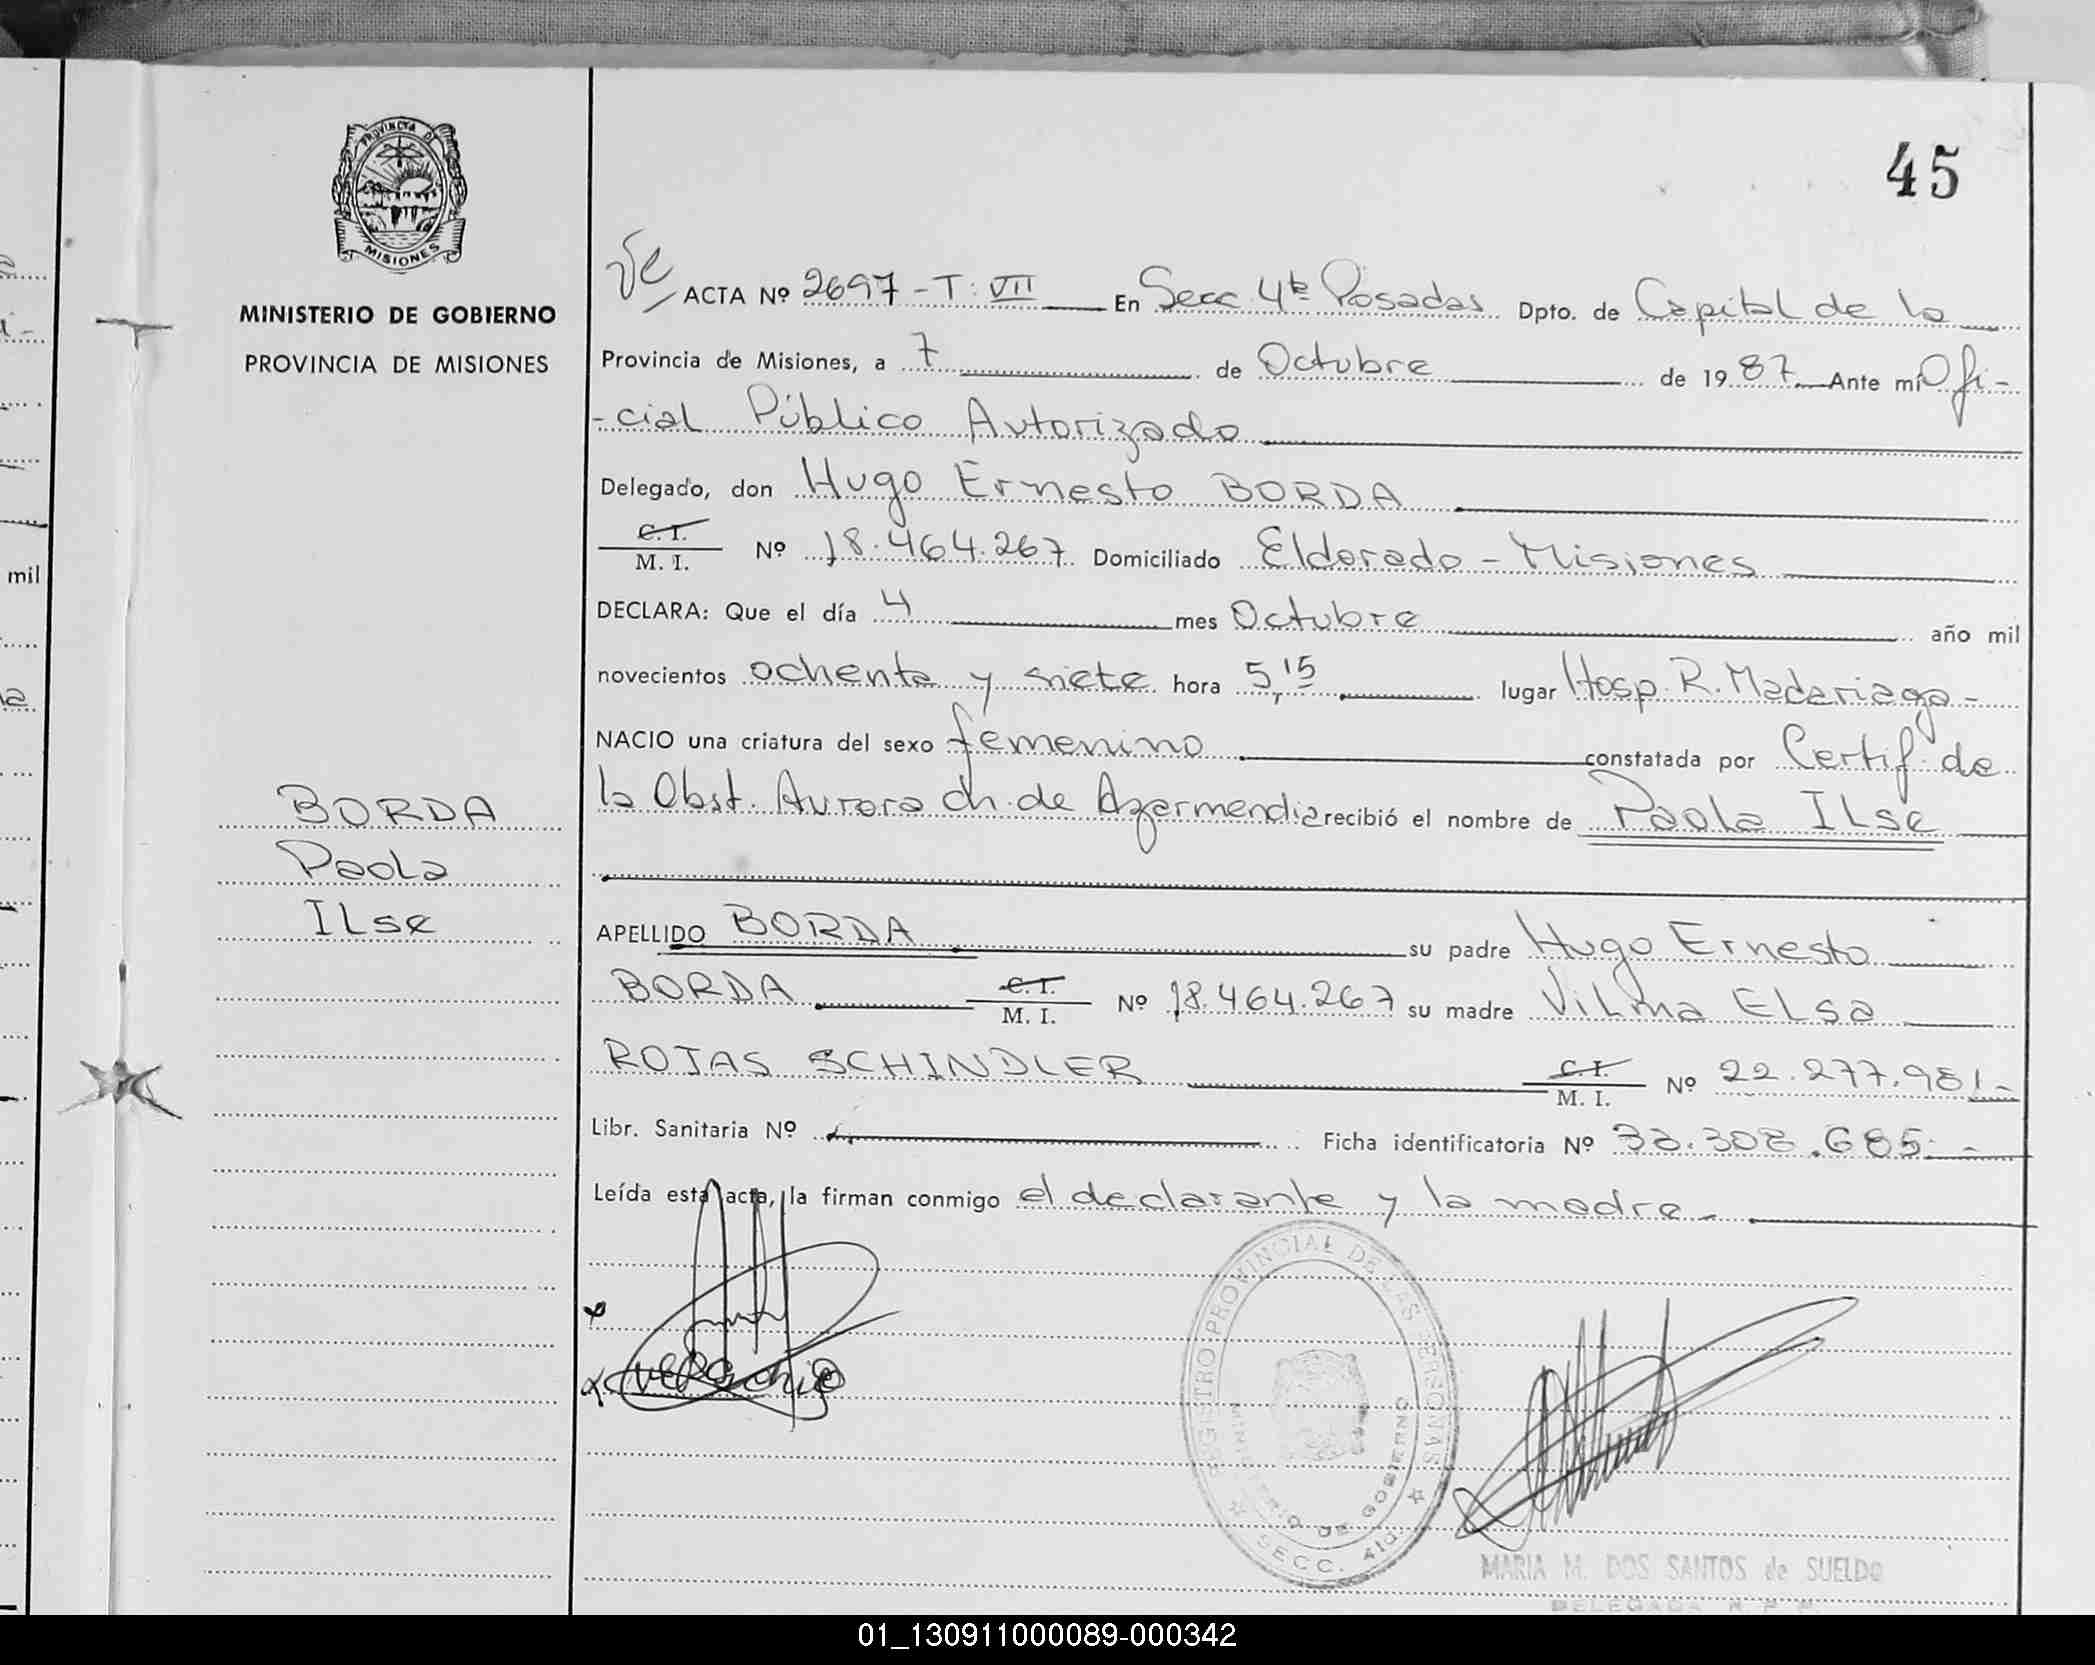 45
PROVINCIA DE
MISIONES
MINISTERIO DE GOBIERNO
PROVINCIA DE MISIONES
ACTA Nº 2697-T: VII En Secc. 4ta Posadas Dpto. de Capital de la
Provincia de Misiones, a 7 de Octubre de 1987 Ante mí Ofi-
-cial Público Autorizado
Delegado, don Hugo Ernesto BORDA
C. I.
M. I. Nº 18.464.267 Domiciliado Eldorado - Misiones
DECLARA: Que el día 4 mes Octubre año mil
novecientos ochenta y siete hora 5,15 lugar Hosp. R. Madariaga -
NACIO una criatura del sexo femenino constatada por Certif. de
la Obst. Aurora Ch. de Azarmendia recibió el nombre de Paola ILse
BORDA
Paola
ILse
APELLIDO BORDA su padre Hugo Ernesto
BORDA C. I. M. I. Nº 18.464.267 su madre ViLma ELsa
ROJAS SCHINDLER C. I. M. I. Nº 22.277.981.-
Libr. Sanitaria Nº Ficha identificatoria Nº 33.308.685.-
Leída esta acta, la firman conmigo el declarante y la madre.-
REGISTRO PROVINCIAL DE LAS PERSONAS
MINISTERIO DE GOBIERNO
SECC. 4ta
MARIA M. DOS SANTOS de SUELDO
DELEGADA R. P. P.
mil
01_130911000089-000342